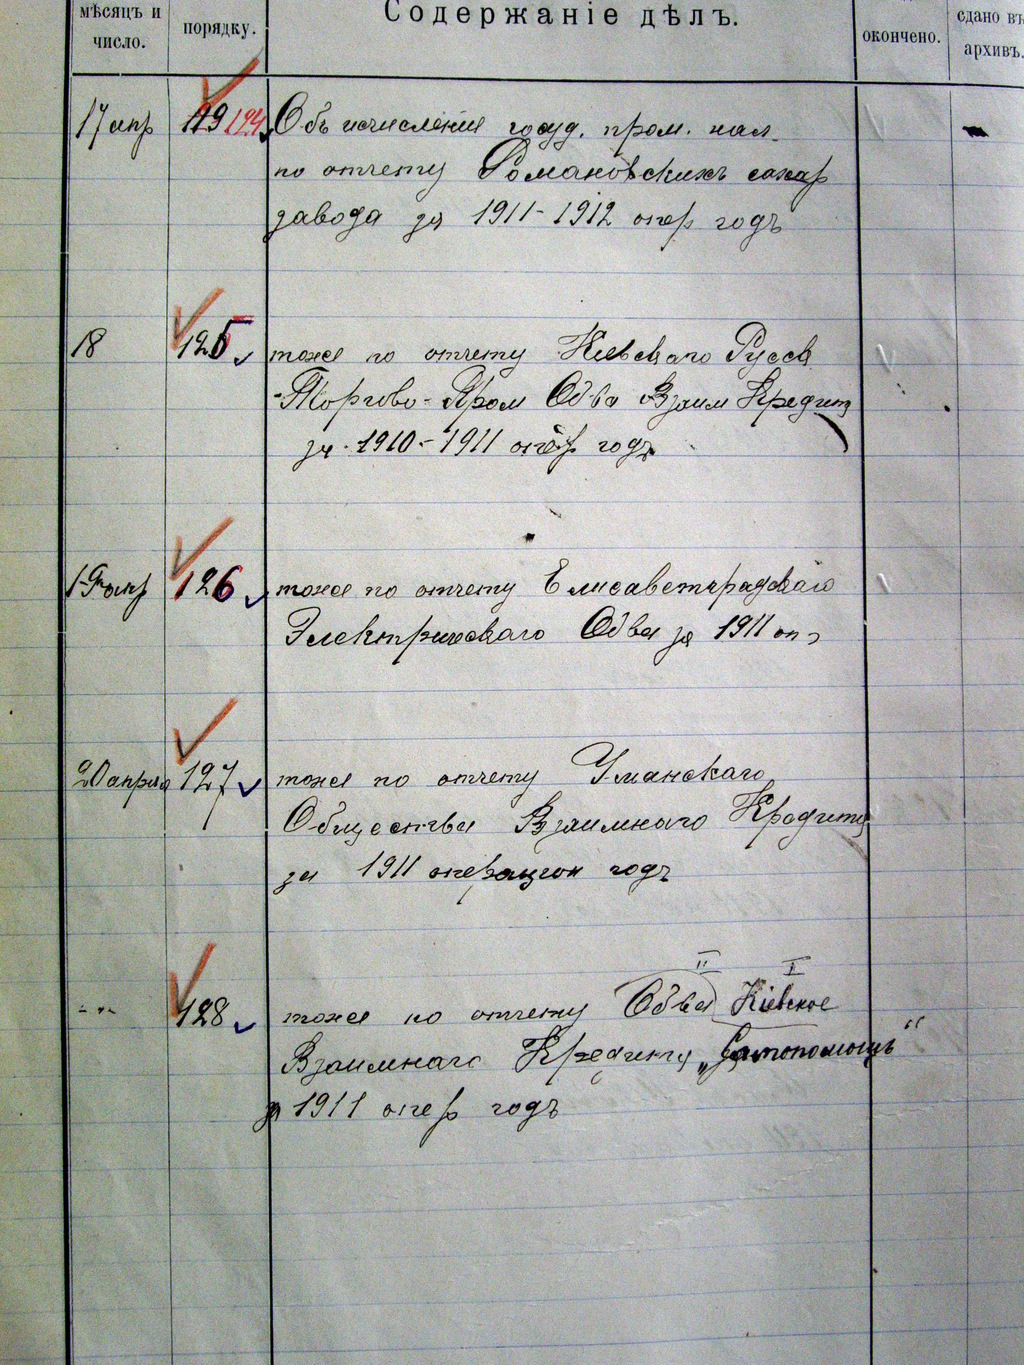 мѣсяцъ и число.
порядку.
Содержаніе дѣлъ.
окончено.
сдано въ архивъ.
17 апр 124 Объ исчисленія госуд. пром. нал
по отчету Романовскихъ сахар
завода за 1911-1912 опер годъ
18 125 тоже по отчету Кіевскаго Русск
-Торгово-Пром Об-ва Взаим Кредита
за 1910-1911 опер годъ
19 апр 126 тоже по отчету Елисаветградскаго
Электрическаго Об-ва за 1911 оп
20 апреля 127 тоже по отчету Уманскаго
Общества Взаимнаго Кредита
за 1911 операцион годъ
II I
-"- 128 тоже по отчету Об-ва Кіевское
Взаимнаго Кредита „Самопомощь"
за 1911 опер годъ